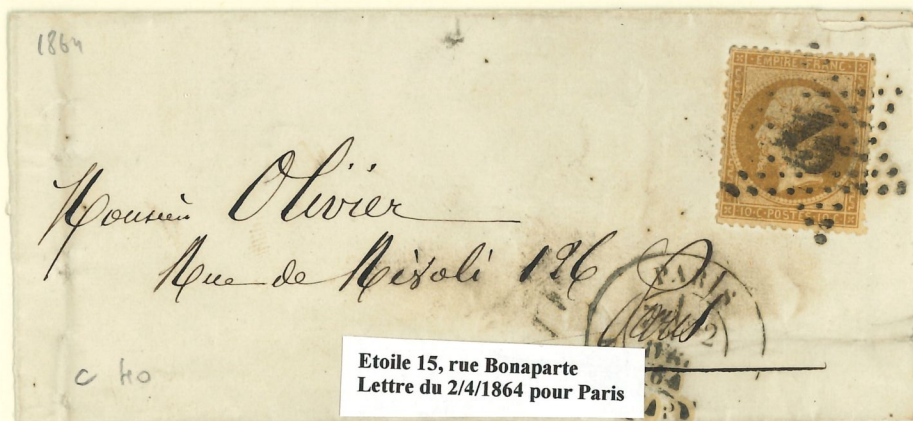 1864
EMPIRE FRANC
10·C·POSTES·10·C
15
Monsieur Olivier
Rue de Rivoli 126
Paris
PARIS
2
AVR.
64
C 40
Etoile 15, rue Bonaparte
Lettre du 2/4/1864 pour Paris